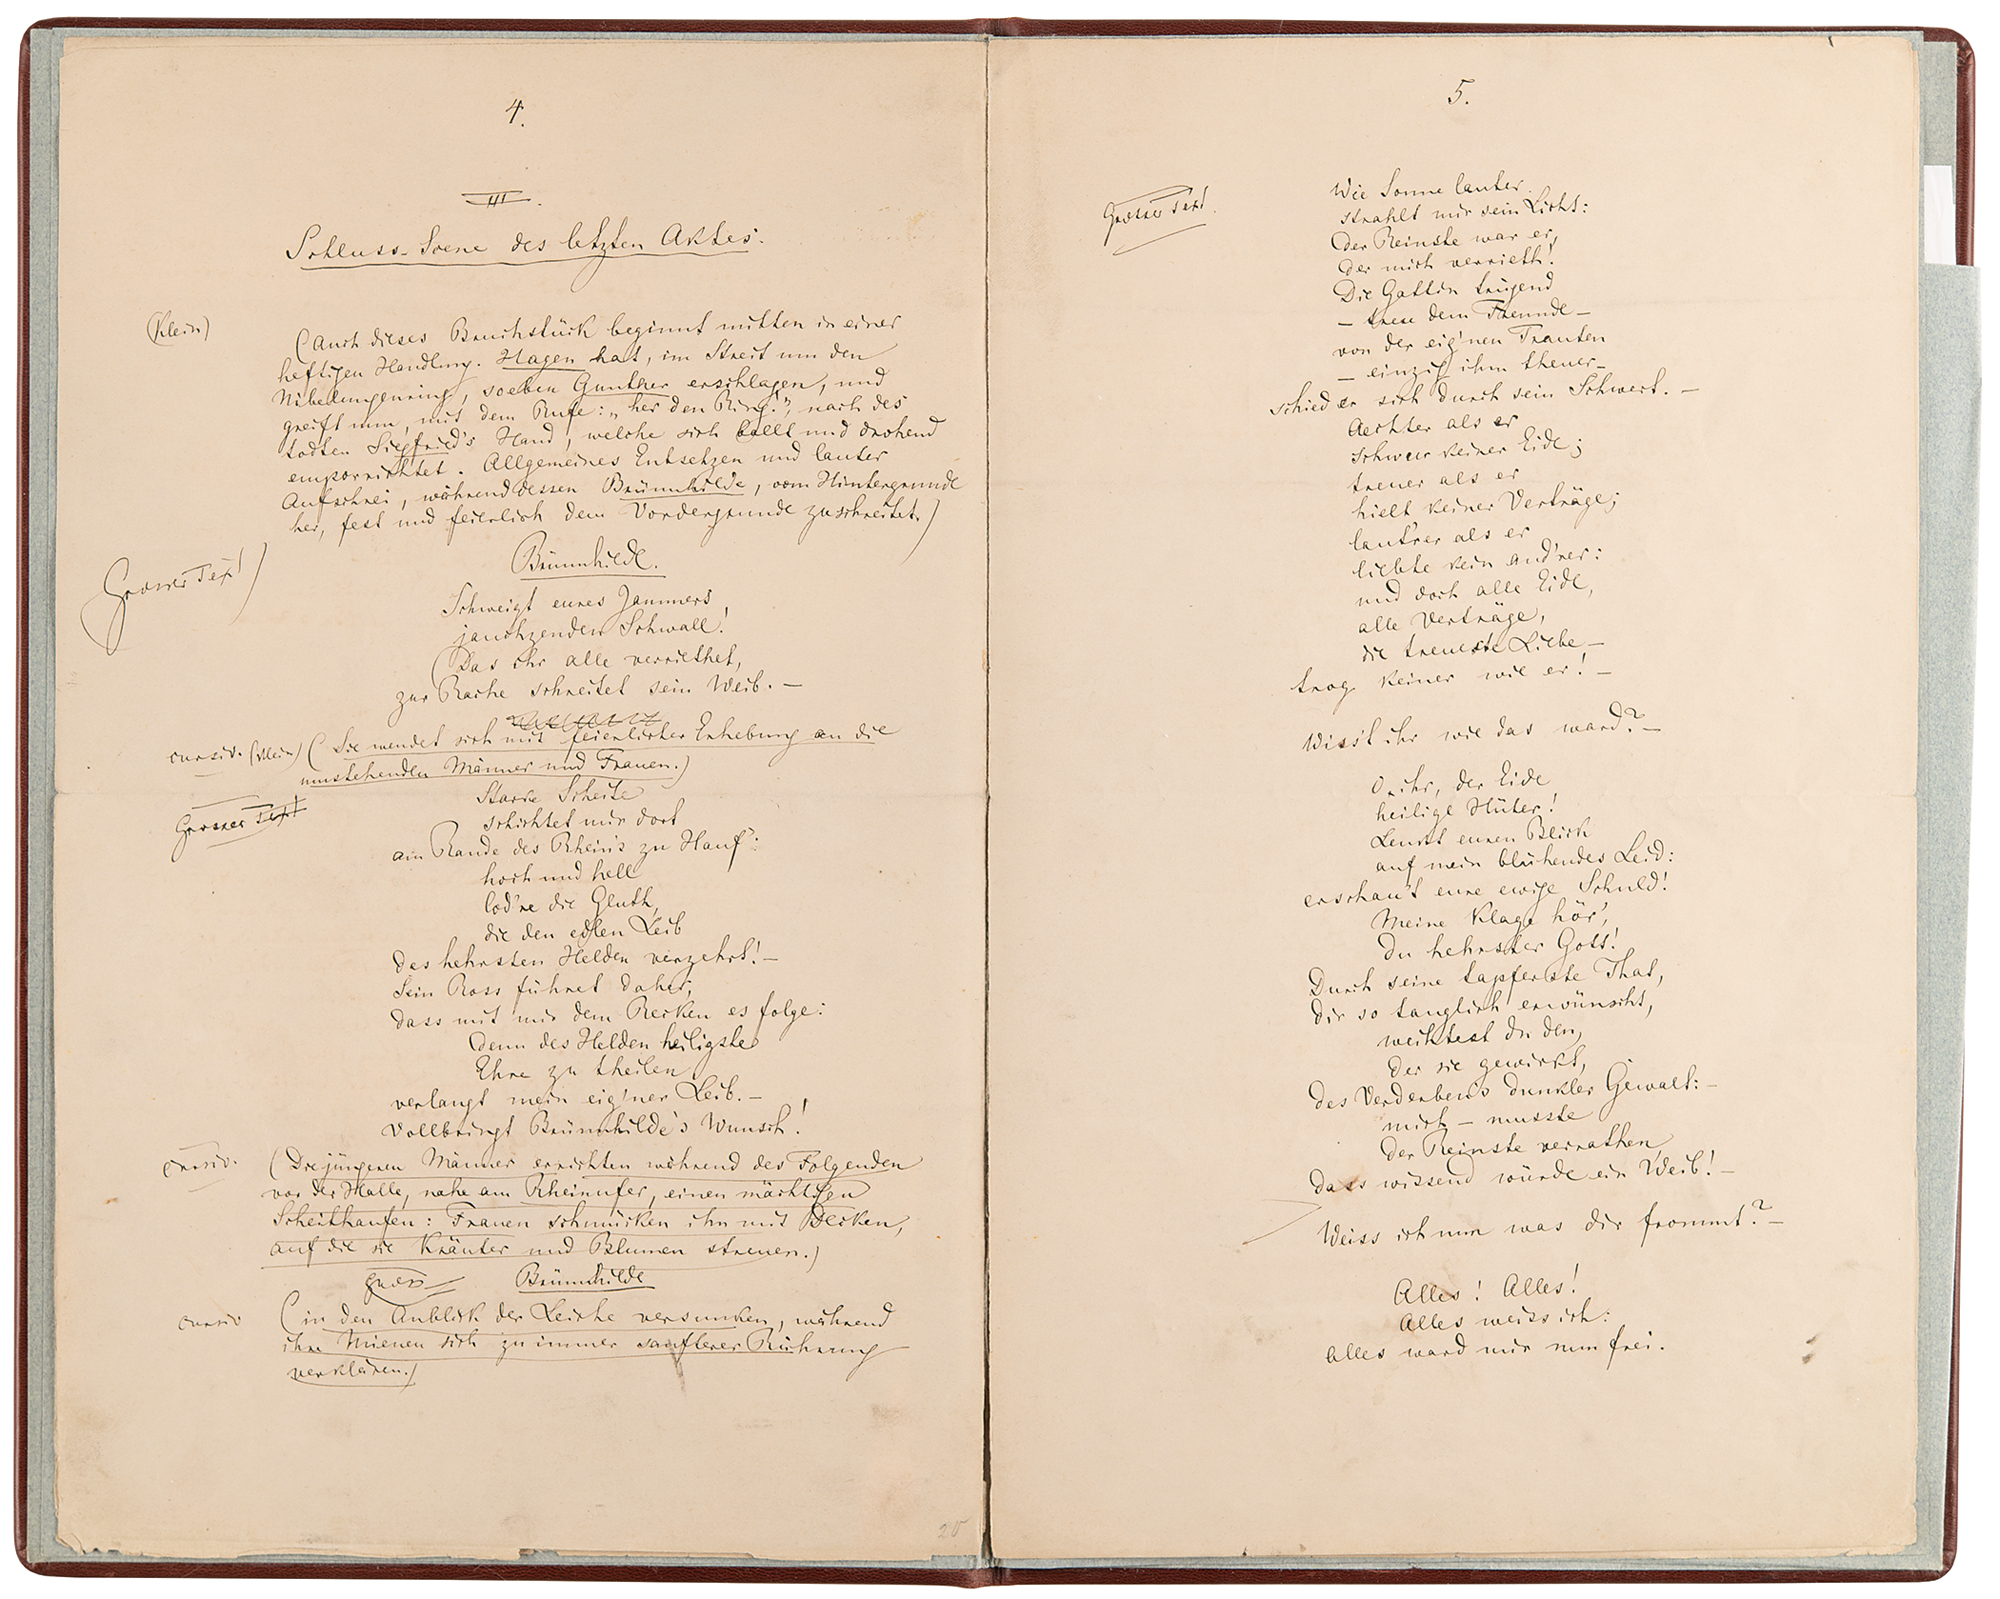 4.
III.
Schluss-Scene des letzten Aktes.
(Klein)
(Auch dieses Bruchstück beginnt mitten in einer
heftigen Handlung. Hagen hat, im Streit um den
Nibelungenring, soeben Gunther erschlagen, und
greift nun, mit dem Rufe: „her den Ring!", nach des
todten Siegfried's Hand, welche sich ballt und drohend
emporrichtet. Allgemeines Entsetzen und lauter
Aufschrei, während dessen Brünnhilde, vom Hintergrunde
her, fest und feierlich dem Vordergrunde zuschreitet.)
Grosser Text)
Brünnhilde.
Schweigt eures Jammers
jauchzenden Schwall!
Das ihr alle verriethet,
zur Rache schreitet sein Weib. —
cursiv. (klein) (Sie wendet sich mit feierlicher Erhebung an die
umstehenden Männer und Frauen.)
Grosser Text
Starke Scheite
schichtet mir dort
am Rande des Rhein's zu Hauf':
hoch und hell
lod're die Gluth,
die den edlen Leib
des hehrsten Helden verzehrt! —
Sein Ross führet daher,
dass mit mir dem Recken es folge:
denn des Helden heiligste
Ehre zu theilen
verlangt mein eig'ner Leib. —
Vollbringt Brünnhilde's Wunsch!
cursiv. (Die jüngeren Männer errichten während des Folgenden
vor der Halle, nahe am Rheinufer, einen mächtigen
Scheithaufen: Frauen schmücken ihn mit Decken,
auf die sie Kräuter und Blumen streuen.)
gross Brünnhilde
cursiv (in den Anblick der Leiche versunken, während
ihre Mienen sich zu immer sanfterer Rührung
verklären.)
20
5.
Grosser Text.
Wie Sonne lauter
strahlt mir sein Licht:
der Reinste war er,
der mich verrieth!
Die Gattin trügend
— treu dem Freunde —
von der eig'nen Trauten
— einzig ihm theuer —
schied er sich durch sein Schwert. —
Aechter als er
schwur keiner Eide;
treuer als er
hielt keiner Verträge;
laut'rer als er
liebte kein and'rer:
und doch alle Eide,
alle Verträge,
die treueste Liebe —
trog keiner wie er! —
Wiss't ihr wie das ward? —
O ihr, der Eide
heilige Hüter!
Lenkt euren Blick
auf mein blühendes Leid:
erschau't eure ewige Schuld!
Meine Klage hör',
du hehrster Gott!
Durch seine tapferste That,
dir so tauglich erwünscht,
weihtest du den,
der sie gewirkt,
des Verderben's dunkler Gewalt: —
mich — musste
der Reinste verrathen,
dass wissend würde ein Weib! —
Weiss ich nun was dir frommt? —
Alles! Alles!
Alles weiss ich:
alles ward mir nun frei.